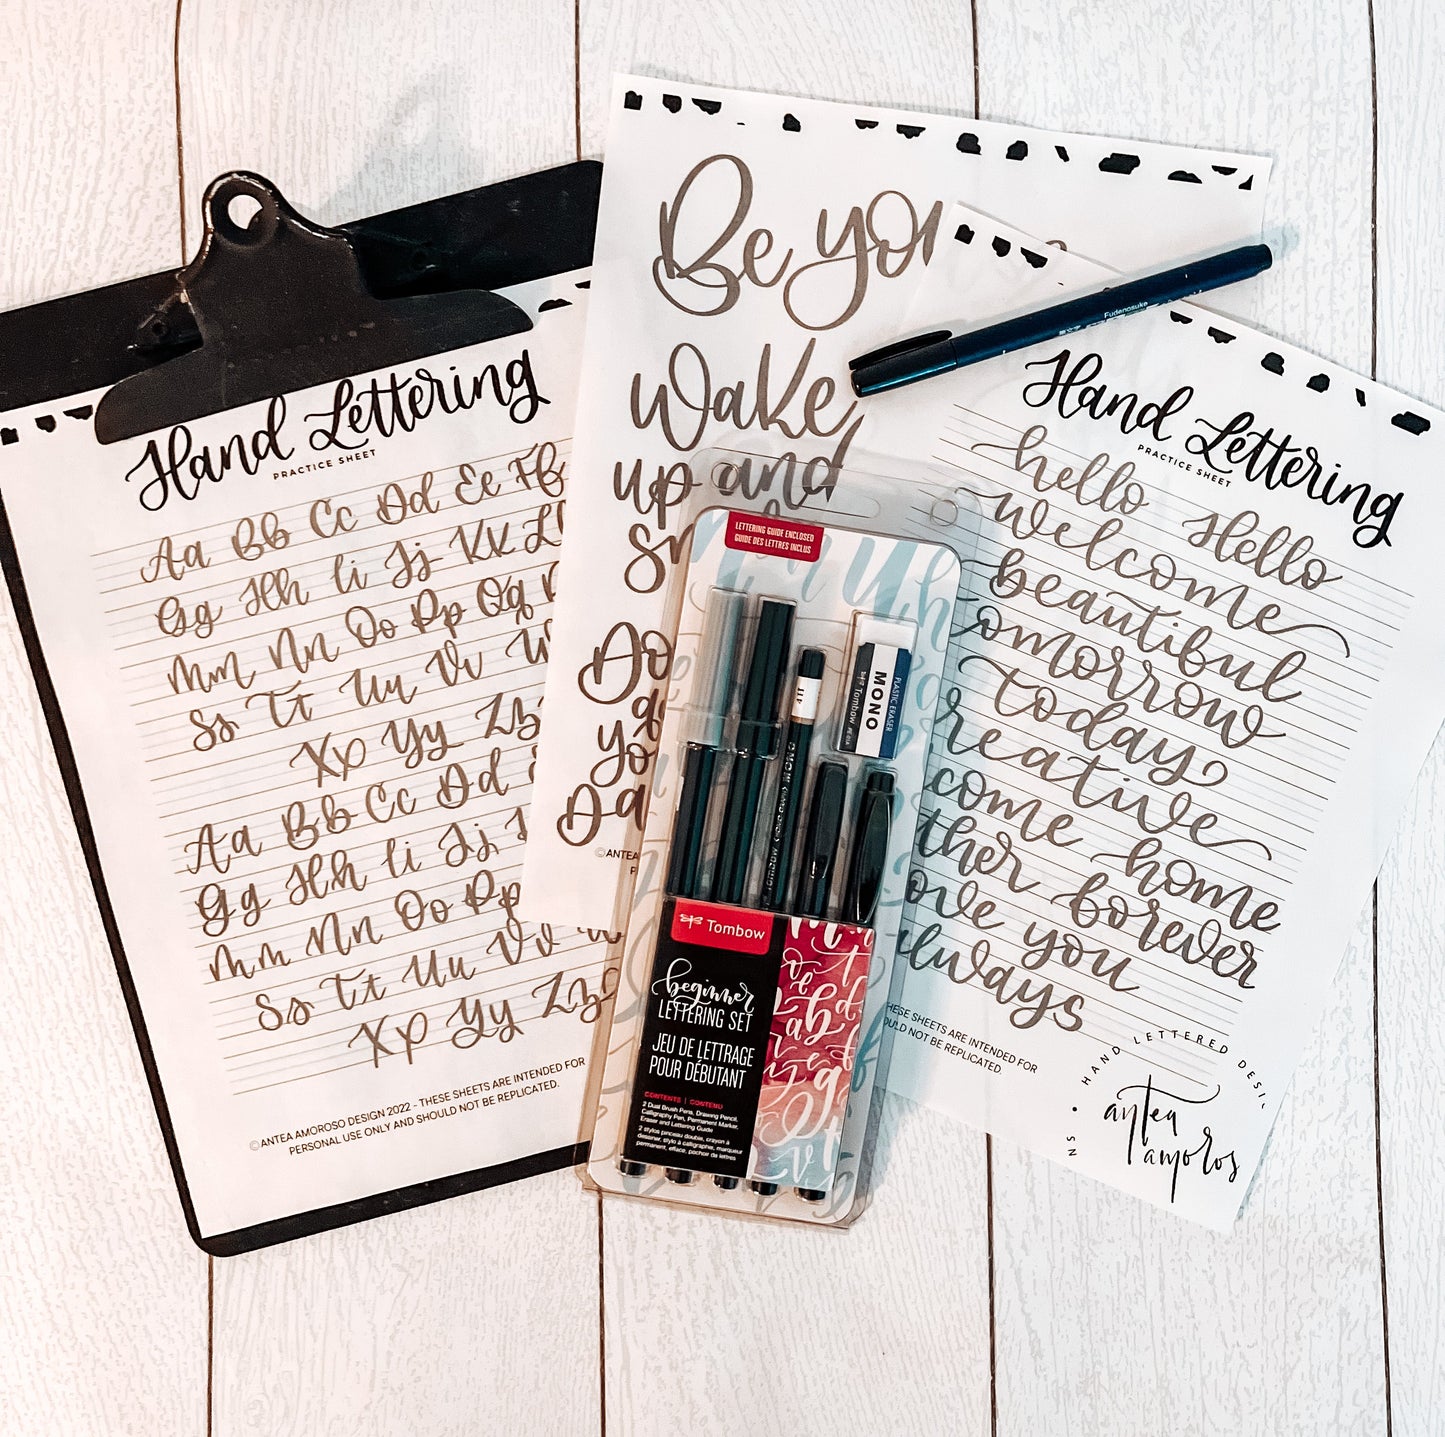 Hand Lettering
PRACTICE SHEET
Aa Bb Cc Dd Ee Ff
Gg Hh Ii Jj Kk Ll
Mm Nn Oo Pp Qq
Ss Tt Uu Vv
Xx Yy Zz
Aa Bb Cc Dd
Gg Hh Ii Jj
Mm Nn Oo Pp
Ss Tt Uu Vv
Xx Yy Zz
©ANTEA AMOROSO DESIGN 2022 - THESE SHEETS ARE INTENDED FOR
PERSONAL USE ONLY AND SHOULD NOT BE REPLICATED.
Be you
Wake
up and
Do
yo
Da
©ANTEA
Fudenosuke
Hand Lettering
PRACTICE SHEET
hello Hello
welcome
beautiful
omorrow
today
reative
come home
ther forever
ove you
lways
THESE SHEETS ARE INTENDED FOR
OULD NOT BE REPLICATED.
HAND LETTERED DESI
NS
antea
amoros
LETTERING GUIDE ENCLOSED
GUIDE DES LETTRES INCLUS
4H
MONO
Tombow
PLASTIC ERASER
MONO
Tombow
Tombow
beginner
LETTERING SET
JEU DE LETTRAGE
POUR DÉBUTANT
CONTENTS | CONTENU
2 Dual Brush Pens, Drawing Pencil,
Calligraphy Pen, Permanent Marker,
Eraser and Lettering Guide
2 stylos pinceau double, crayon à
dessiner, stylo à calligraphie, marqueur
permanent, efface, pochoir de lettres